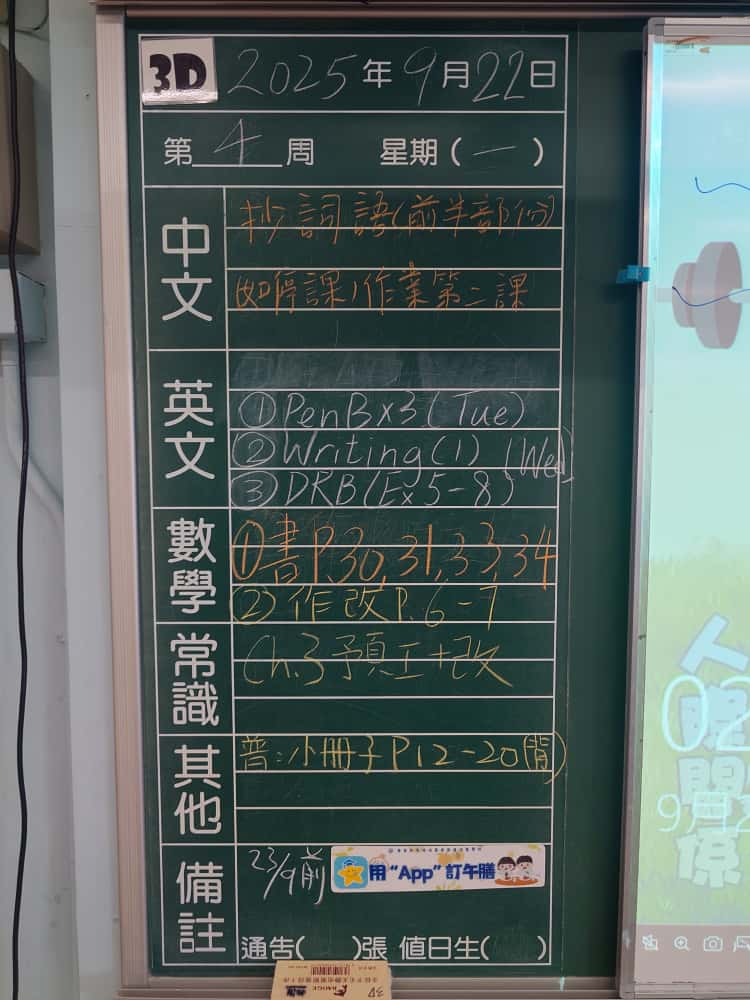 3D 2025年9月22日
第4周 星期(一)
中文
抄詞語(前半部份)
(如停課)作業第二課
英文
① PenB×3 (Tue)
② Writing(1) (Wed)
③ DRB(Ex5-8)
數學
① 書P.30,31,33,34
(2) 作改P.6-7
常識
Ch.3預工+改
其他
普:小冊子P12-20(背)
備註
23/9前
用“App”訂午膳
通告( )張 值日生( )
3D
人際關係
02
9月2